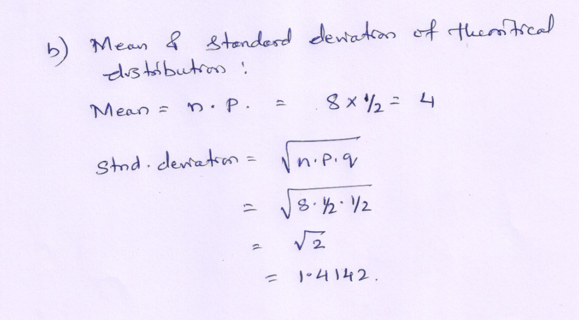 b) Mean & standard deviation of theoritical
distribution :
Mean = n · p. = 8 × 1/2 = 4
Stnd. deviation = √n.p.q
= √8 · 1/2 · 1/2
= √2
= 1.4142.